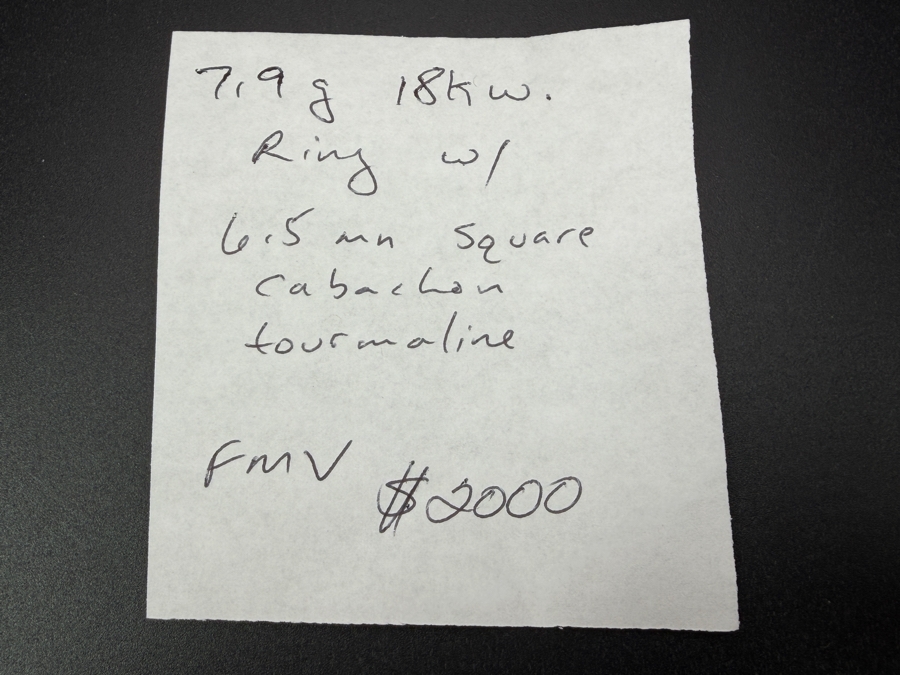 7.9 g 18kw.
Ring w/
6.5 mm square
cabachon
tourmaline
FMV $2000